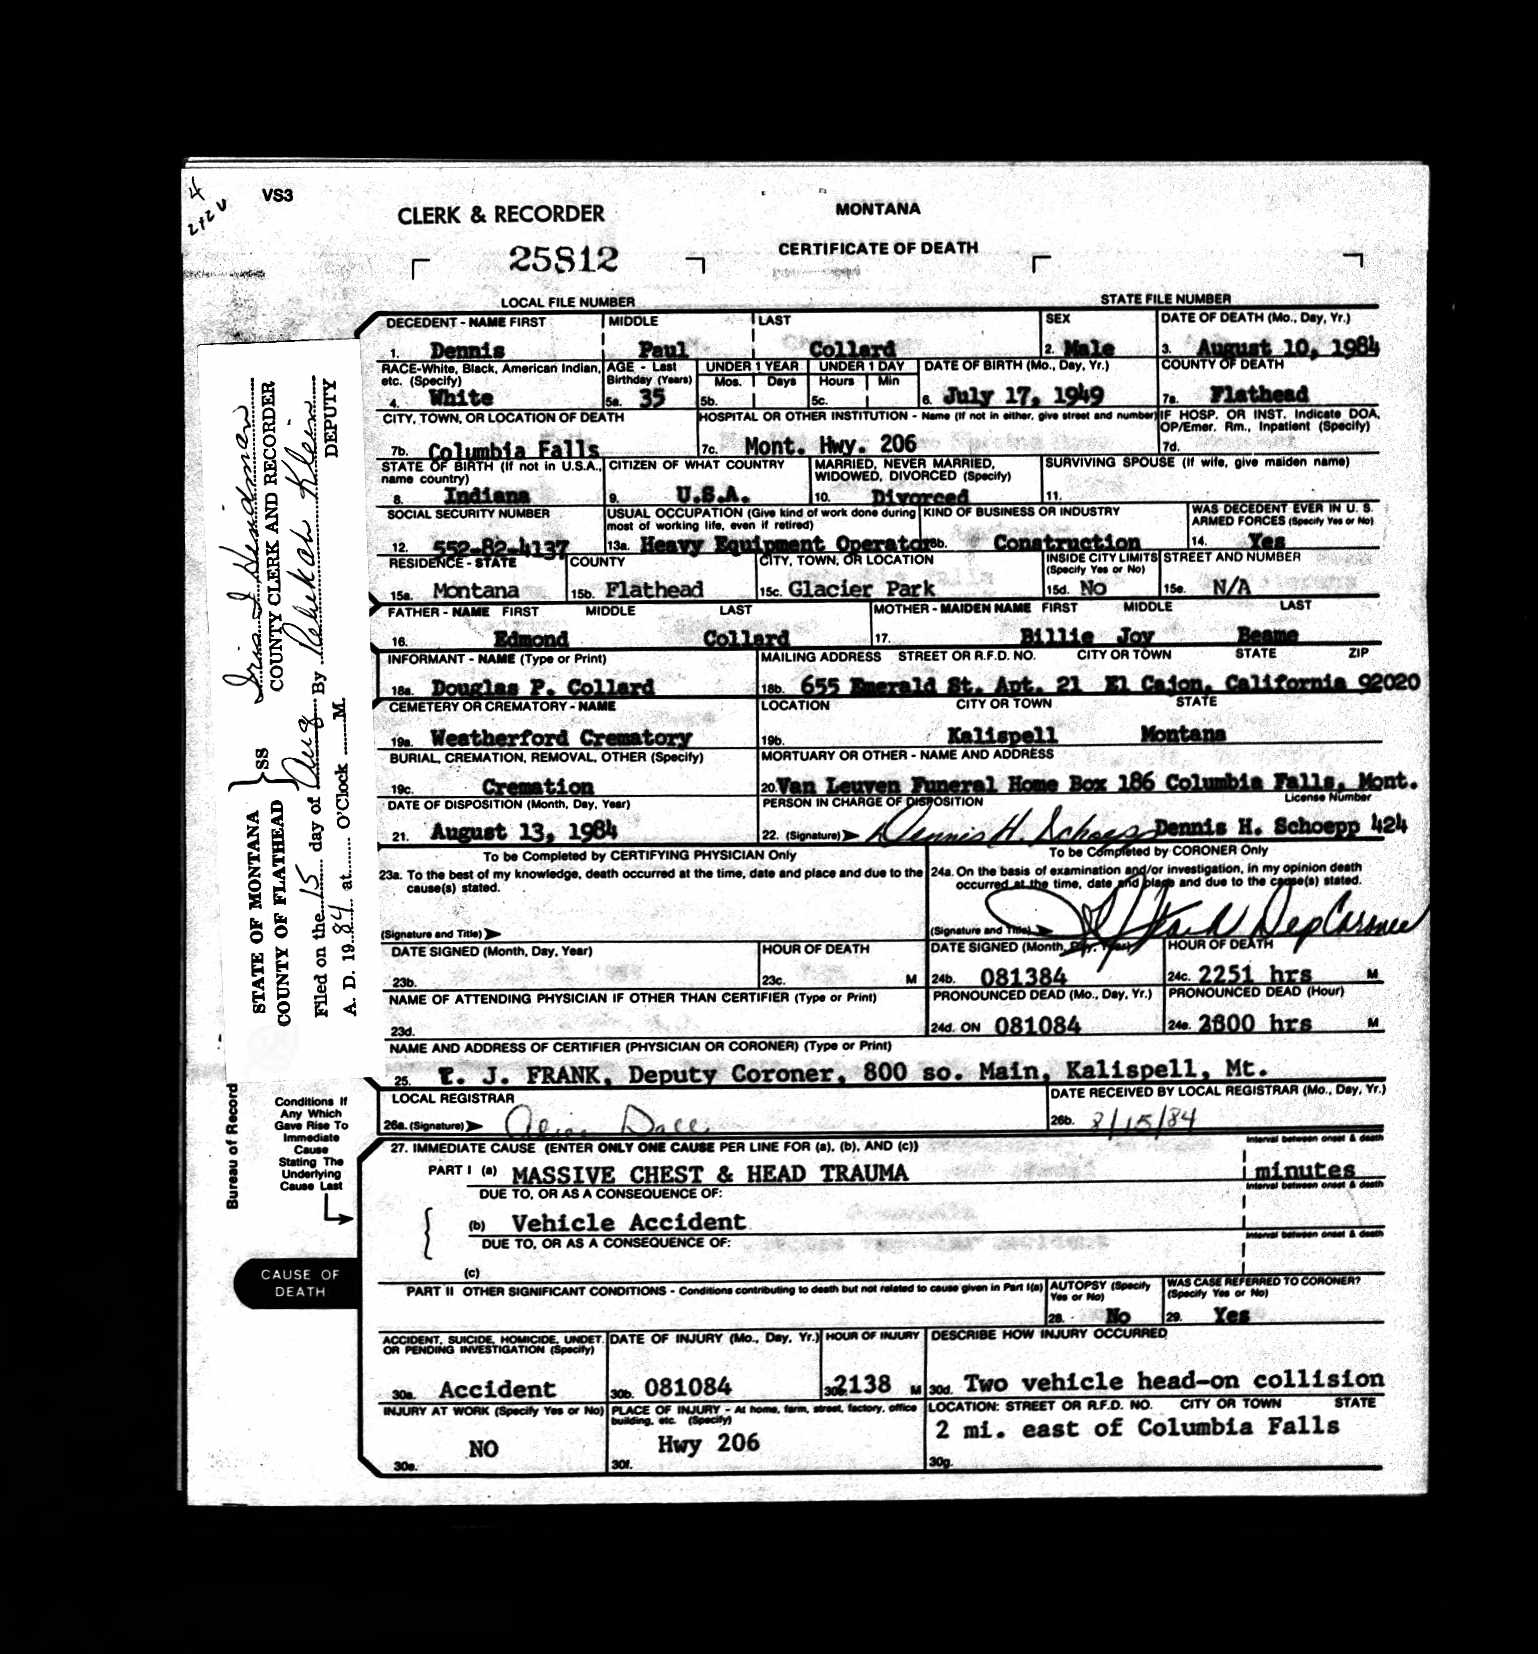 4
2+2 V
VS3
CLERK & RECORDER
MONTANA
25812
CERTIFICATE OF DEATH
LOCAL FILE NUMBER
STATE FILE NUMBER
DECEDENT - NAME FIRST MIDDLE LAST SEX DATE OF DEATH (Mo., Day, Yr.)
1. Dennis Paul Collard 2. Male 3. August 10, 1984
RACE-White, Black, American Indian, etc. (Specify) AGE - Last Birthday (Years) UNDER 1 YEAR UNDER 1 DAY DATE OF BIRTH (Mo., Day, Yr.) COUNTY OF DEATH
Mos. Days Hours Min
4. White 5a. 35 5b. 5c. 6. July 17, 1949 7a. Flathead
CITY, TOWN, OR LOCATION OF DEATH HOSPITAL OR OTHER INSTITUTION - Name (If not in either, give street and number) IF HOSP. OR INST. Indicate DOA, OP/Emer. Rm., Inpatient (Specify)
7b. Columbia Falls 7c. Mont. Hwy. 206 7d.
STATE OF BIRTH (If not in U.S.A., name country) CITIZEN OF WHAT COUNTRY MARRIED, NEVER MARRIED, WIDOWED, DIVORCED (Specify) SURVIVING SPOUSE (If wife, give maiden name)
8. Indiana 9. U.S.A. 10. Divorced 11.
SOCIAL SECURITY NUMBER USUAL OCCUPATION (Give kind of work done during most of working life, even if retired) KIND OF BUSINESS OR INDUSTRY WAS DECEDENT EVER IN U. S. ARMED FORCES (Specify Yes or No)
12. 552-82-4137 13a. Heavy Equipment Operator 13b. Construction 14. Yes
RESIDENCE - STATE COUNTY CITY, TOWN, OR LOCATION INSIDE CITY LIMITS (Specify Yes or No) STREET AND NUMBER
15a. Montana 15b. Flathead 15c. Glacier Park 15d. NO 15e. N/A
FATHER - NAME FIRST MIDDLE LAST MOTHER - MAIDEN NAME FIRST MIDDLE LAST
16. Edmond Collard 17. Billie Joy Beame
INFORMANT - NAME (Type or Print) MAILING ADDRESS STREET OR R.F.D. NO. CITY OR TOWN STATE ZIP
18a. Douglas P. Collard 18b. 655 Emerald St. Apt. 21 El Cajon, California 92020
CEMETERY OR CREMATORY - NAME LOCATION CITY OR TOWN STATE
19a. Weatherford Crematory 19b. Kalispell Montana
BURIAL, CREMATION, REMOVAL, OTHER (Specify) MORTUARY OR OTHER - NAME AND ADDRESS
19c. Cremation 20. Van Leuven Funeral Home Box 186 Columbia Falls, Mont.
DATE OF DISPOSITION (Month, Day, Year) PERSON IN CHARGE OF DISPOSITION License Number
21. August 13, 1984 22. (Signature) Dennis H. Schoepp Dennis H. Schoepp 424
To be Completed by CERTIFYING PHYSICIAN Only To be Completed by CORONER Only
23a. To the best of my knowledge, death occurred at the time, date and place and due to the cause(s) stated. 24a. On the basis of examination and/or investigation, in my opinion death occurred at the time, date and place and due to the cause(s) stated.
(Signature and Title) (Signature and Title) Dep Coroner
DATE SIGNED (Month, Day, Year) HOUR OF DEATH DATE SIGNED (Month, Day, Year) HOUR OF DEATH
23b. 23c. M 24b. 081384 24c. 2251 hrs M
NAME OF ATTENDING PHYSICIAN IF OTHER THAN CERTIFIER (Type or Print) PRONOUNCED DEAD (Mo., Day, Yr.) PRONOUNCED DEAD (Hour)
23d. 24d. ON 081084 24e. 2300 hrs M
NAME AND ADDRESS OF CERTIFIER (PHYSICIAN OR CORONER) (Type or Print)
25. T. J. FRANK, Deputy Coroner, 800 so. Main, Kalispell, Mt.
LOCAL REGISTRAR DATE RECEIVED BY LOCAL REGISTRAR (Mo., Day, Yr.)
26a. (Signature) 26b. 8/15/84
27. IMMEDIATE CAUSE (ENTER ONLY ONE CAUSE PER LINE FOR (a), (b), AND (c)) Interval between onset & death
PART I (a) MASSIVE CHEST & HEAD TRAUMA minutes
DUE TO, OR AS A CONSEQUENCE OF: Interval between onset & death
(b) Vehicle Accident
DUE TO, OR AS A CONSEQUENCE OF: Interval between onset & death
(c)
PART II OTHER SIGNIFICANT CONDITIONS - Conditions contributing to death but not related to cause given in Part I(a) AUTOPSY (Specify Yes or No) WAS CASE REFERRED TO CORONER? (Specify Yes or No)
28. No 29. Yes
ACCIDENT, SUICIDE, HOMICIDE, UNDET. OR PENDING INVESTIGATION (Specify) DATE OF INJURY (Mo., Day, Yr.) HOUR OF INJURY DESCRIBE HOW INJURY OCCURRED
30a. Accident 30b. 081084 30c. 2138 M 30d. Two vehicle head-on collision
INJURY AT WORK (Specify Yes or No) PLACE OF INJURY - At home, farm, street, factory, office building, etc. (Specify) LOCATION: STREET OR R.F.D. NO. CITY OR TOWN STATE
30e. NO 30f. Hwy 206 30g. 2 mi. east of Columbia Falls
STATE OF MONTANA
COUNTY OF FLATHEAD } SS
Filed on the 15 day of Aug By Rebekah Klein DEPUTY
A. D. 1984 at O'Clock M.
COUNTY CLERK AND RECORDER
Bureau of Record
Conditions If
Any Which
Gave Rise To
Immediate
Cause
Stating The
Underlying
Cause Last
CAUSE OF
DEATH